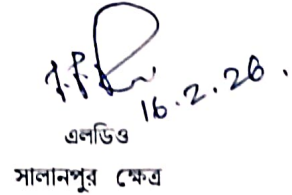 16.2.26.
এলডিও
সালানপুর ক্ষেত্র